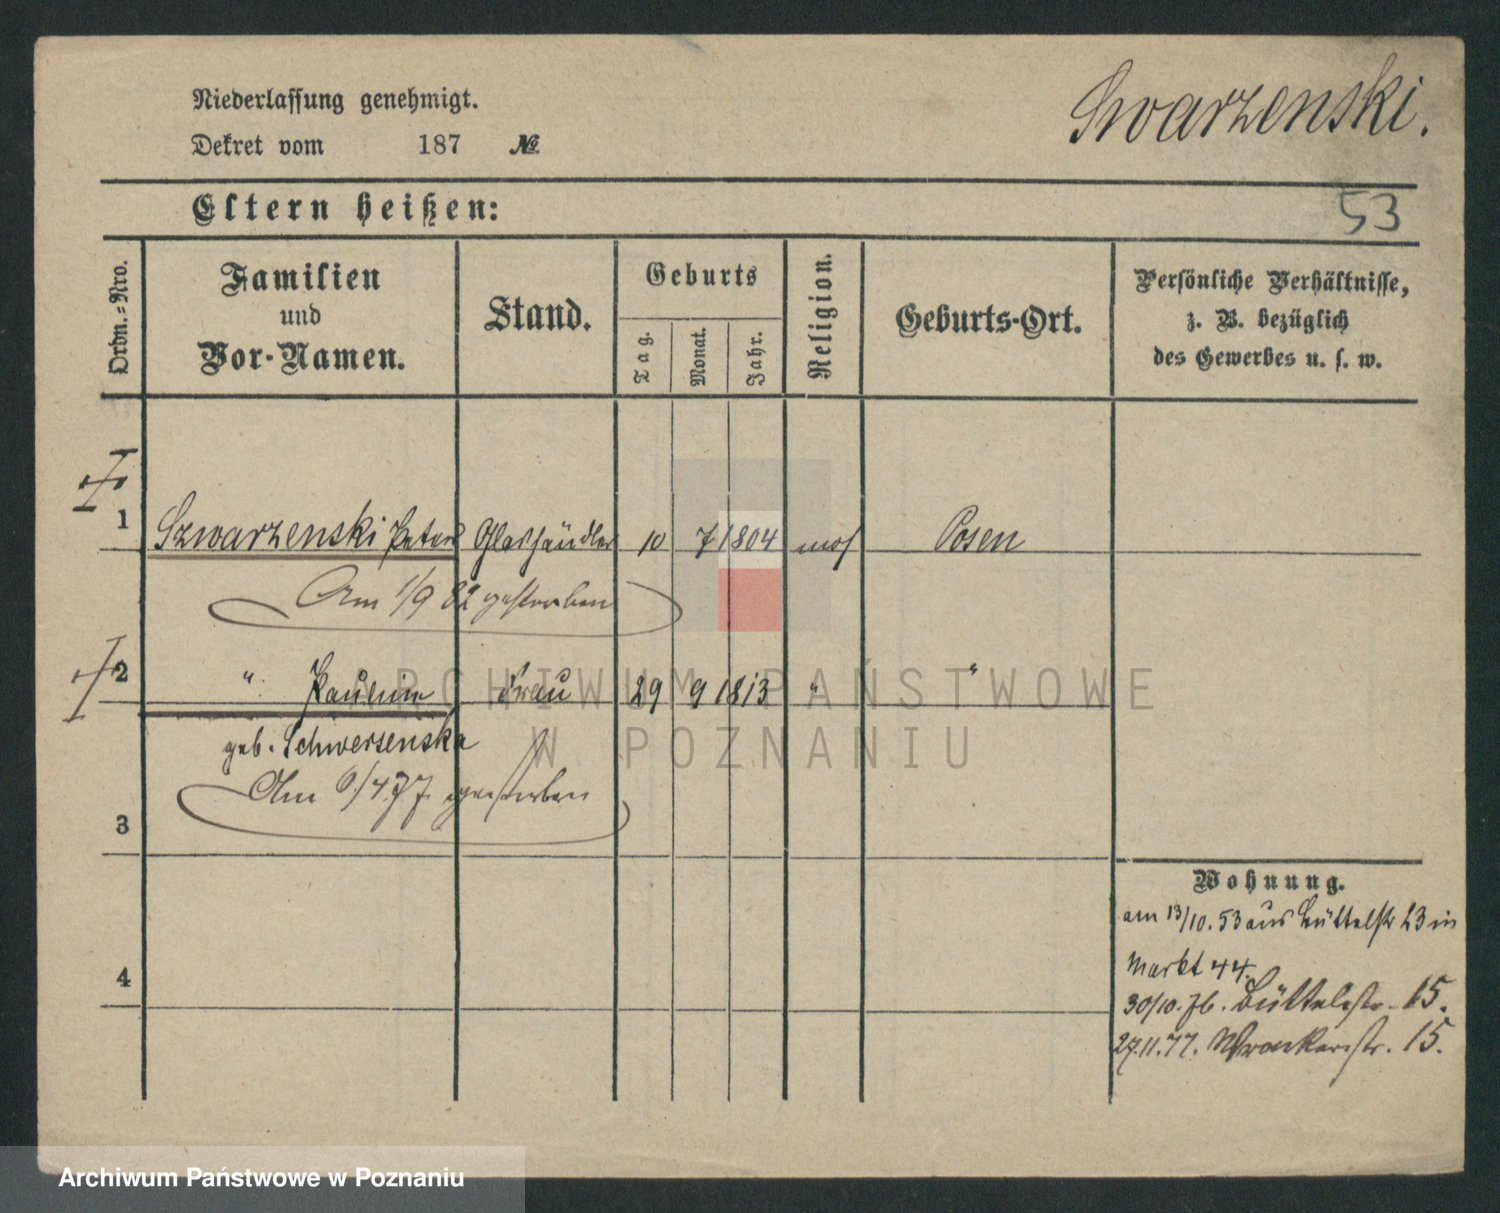 Niederlassung genehmigt.
Dekret vom 187 №
Swarzenski.
Eltern heißen:
53
Ordn.-Nro.
Familien und Vor-Namen.
Stand.
Geburts
Tag.
Monat.
Jahr.
Religion.
Geburts-Ort.
Persönliche Verhältnisse,
z. B. bezüglich
des Gewerbes u. s. w.
1 Szwarzenski Glashändler 10 7 1804 mos Posen
Am 1/9 82 gestorben
2 " Pauline Frau 29 9 1813 " "
geb. Schwersenska
Am 6/4.77 gestorben
3
4
Wohnung.
am 13/10.53 aus Büttelstr 23 in
Markt 44.
30/10.76. Büttelstr. 15.
27.11.77. Wronkerstr. 15.
ARCHIWUM PAŃSTWOWE
W POZNANIU
Archiwum Państwowe w Poznaniu